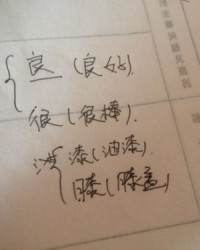 良(良好).
很(很棒).
漆(油漆)
膝(膝盖)